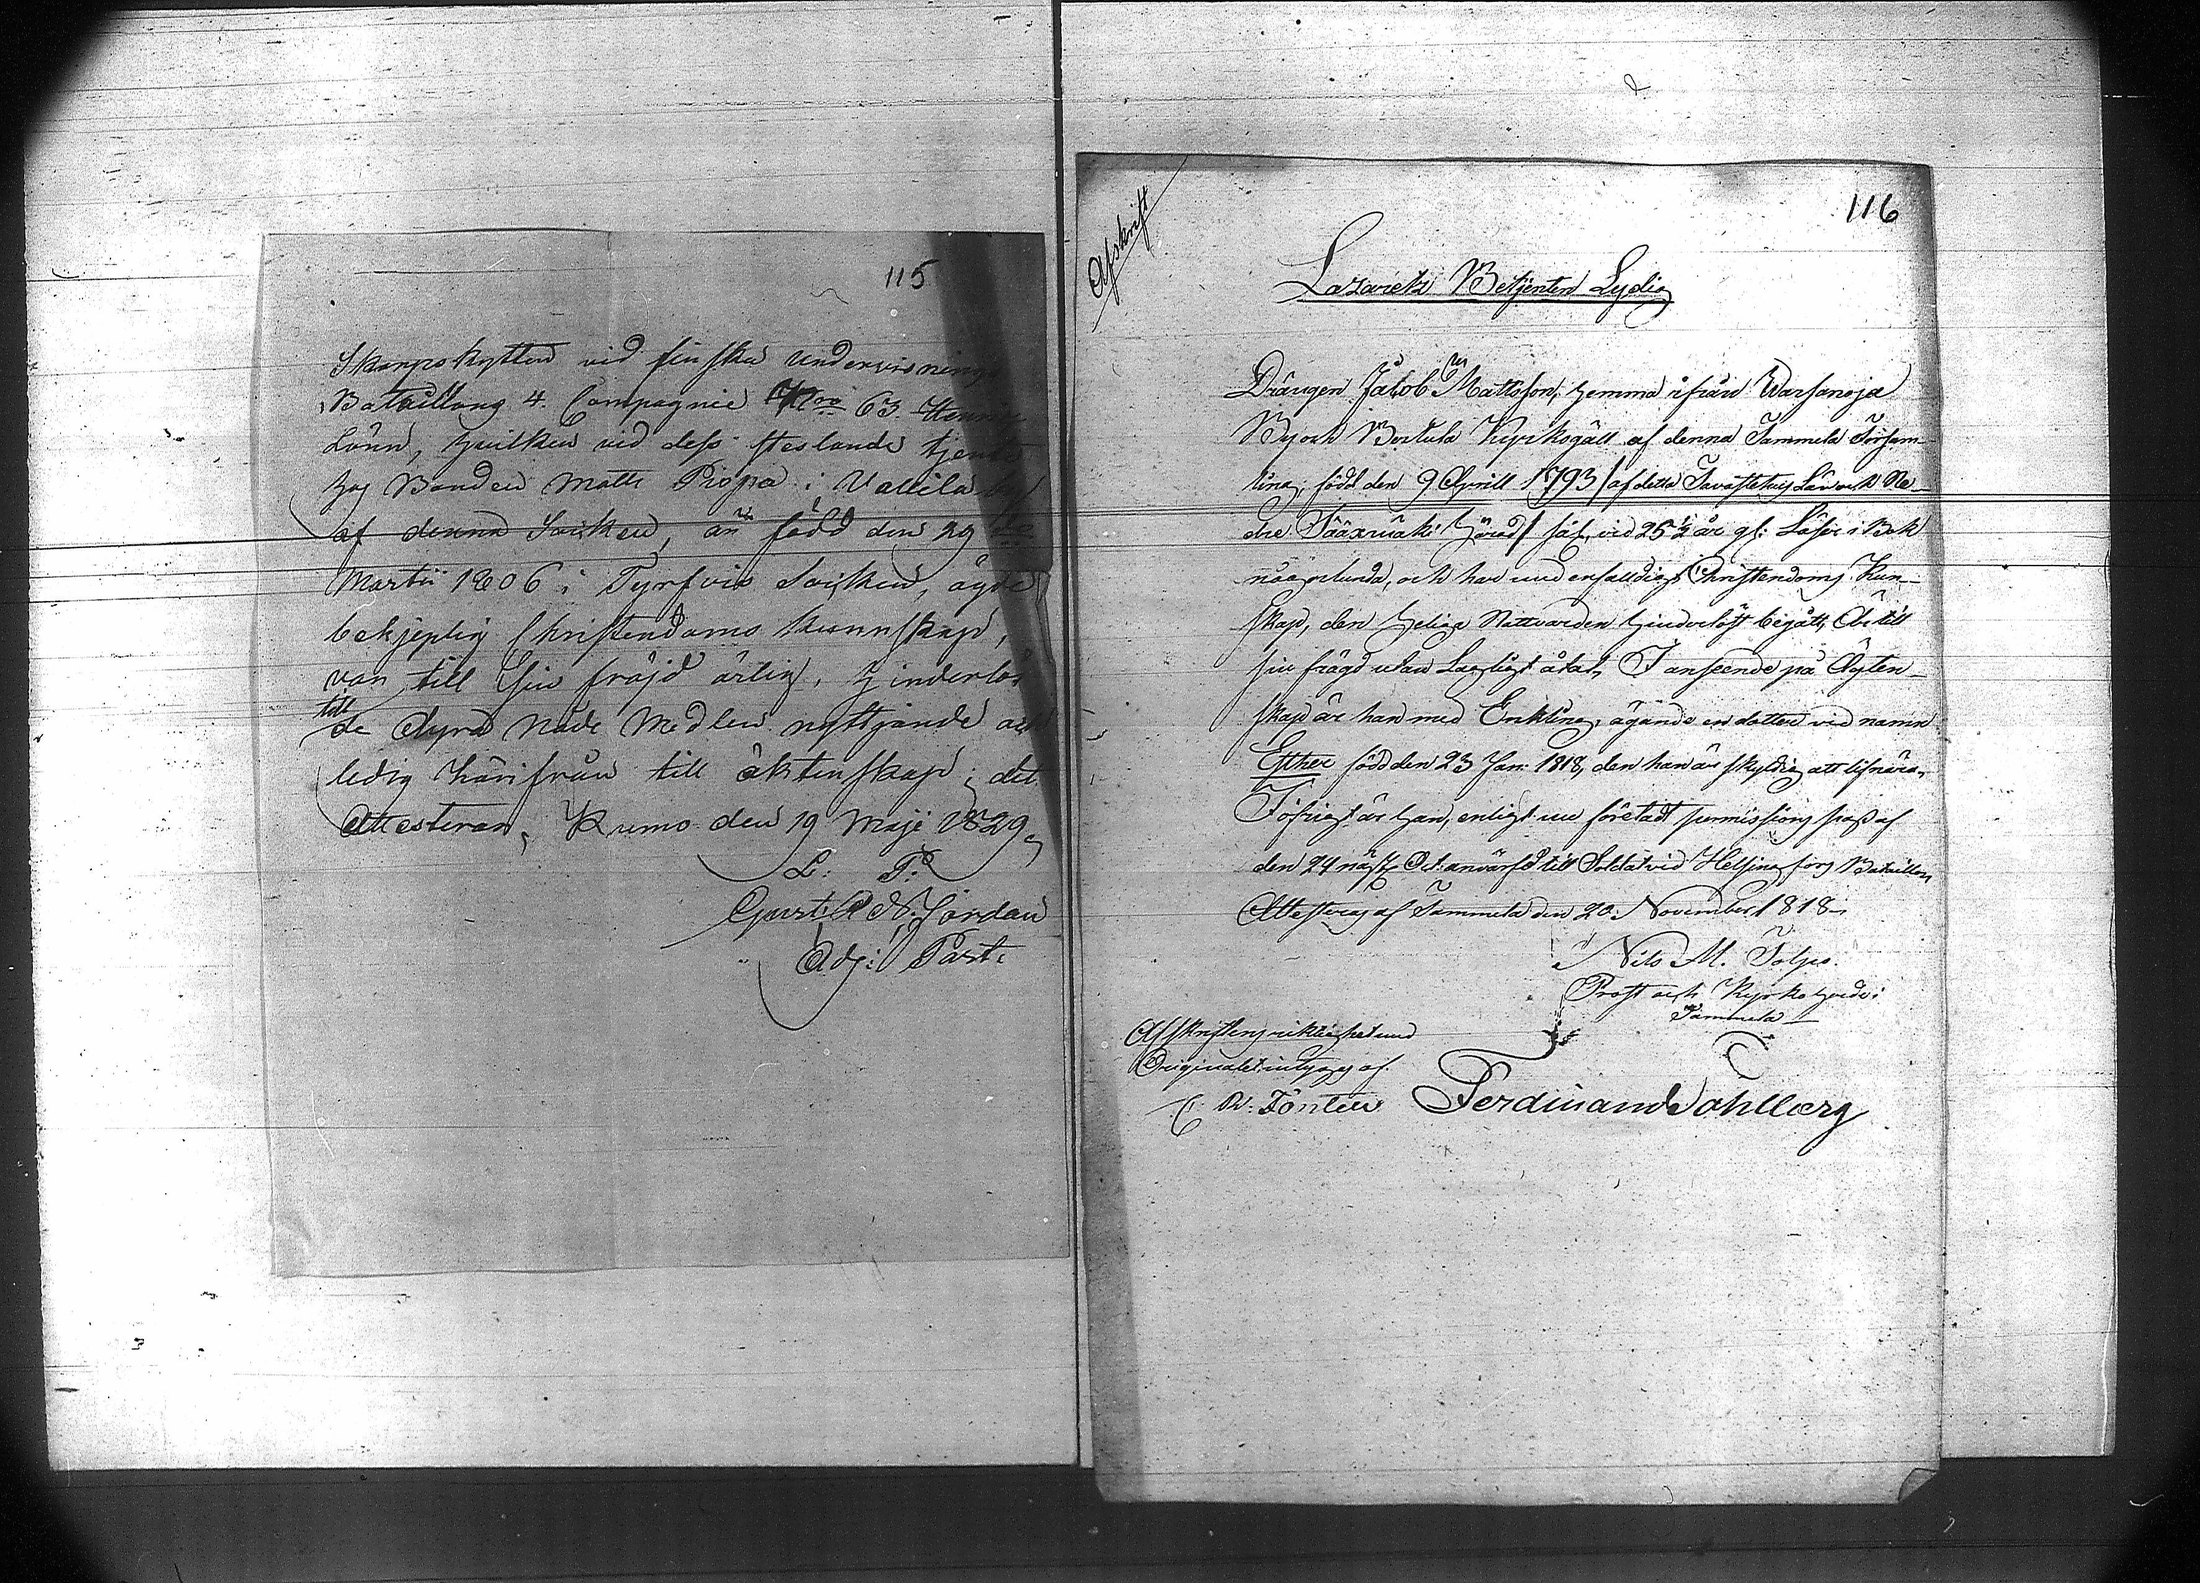 115
Skarpskytten vid finska undervisnings
Bataillons 4. Compagnie N:ro 63
Lönn, hvilken vid dess tjent
hos Bonden Matts Piopa i Vallila by
af denna Socken, är född den 29
Martii 1806 i Tyrfvis Socken, äger
christendoms kunnskap,
van till sin fräjd ärlig, hinderlös
till
de dyra Nåde Medlens nyttjande och
ledig härifrån till äktenskap; det
Attesteras, Kumo den 19 Maji 1829.
L. P.
Gust: A N. Jordan
Adj: Past:
116
Afskrift
Lazarets Betjenten Lydig
Drängen Jakob Mattsson, hemma ifrån Warsanoja
By och Kyrkogäll af denna Tammela Försam-
ling, född den 9 Aprill 1793 / af detta Tavastehus Län och Ne-
dre Sääxmäki Härad / sål. vid 25 ½ år gl: Läser i Bok
någorlunda, och har med enfalldig Christendoms Kun-
skap, den Helige Nattvarden hinderlöst begått, Är till
sin frägd utan Lagligt åtal, I anseende på Ägten-
skap är han med Enkling, ägande en dotter vid namn
Esther född den 23 Jan: 1818, den han är skyldig att lifnära.
Iöfrigt är han, enligt nu företedt permissions pass af
den 24 näst: Oct. anvärfd till Soldat vid Helsingfors Bataillon
Attesteras af Tammela den 20: November 1818.
Nils M. Tolpo.
Prost och Kyrkoherde i
Tammela
Afskriftens riktighet med
Originalet intygas af
C. W. Fonten Ferdinand Sahlberg